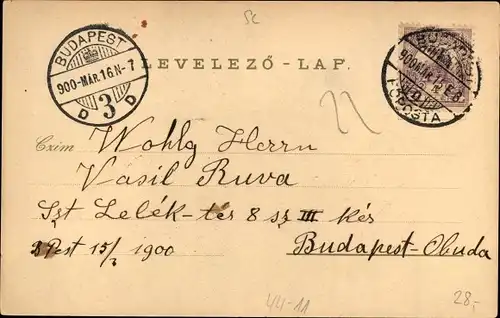 Sc
BUDAPEST
900-MÁR.16.N-7
D 3 D
LEVELEZŐ-LAP.
FŐPOSTA
Czim Wohlg Herrn
Vasil Ruva
Szt Lelék-tér 8 sz III kér
Pest 15/3 1900
Budapest-Obuda
44-11
28,-